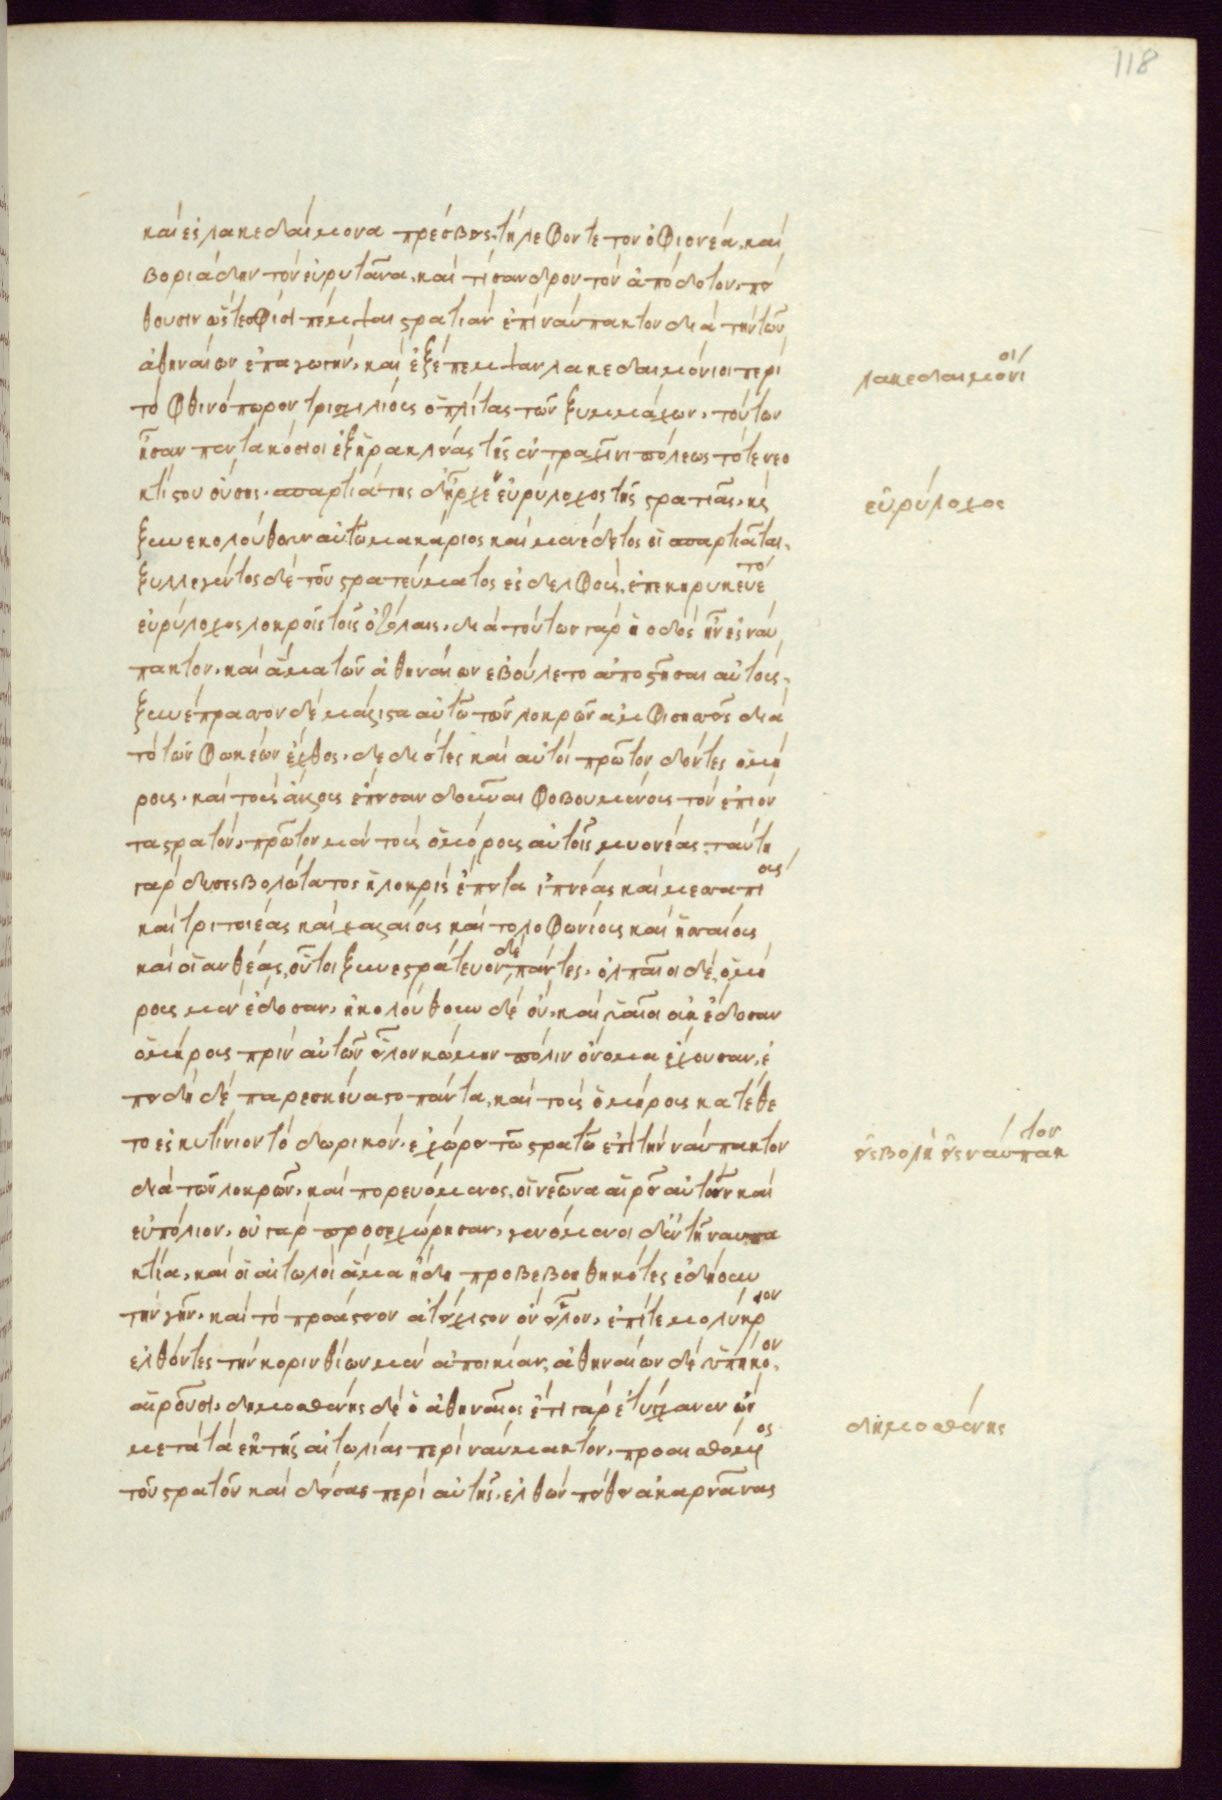 118
καὶ ἐς λακεδαίμονα πρέσβεις. τήλεφόν τε τὸν ὀφιονέα, καὶ
βοριάδην τὸν εὐρυτᾶνα, καὶ τίσανδρον τὸν ἀπόδοτον, πεί
θουσιν ὥστε σφίσι πέμψαι στρατιὰν ἐπὶ ναύπακτον διὰ τὴν τῶν
ἀθηναίων ἐπαγωγήν, καὶ ἐξέπεμψαν λακεδαιμόνιοι περὶ
τὸ φθινόπωρον τρισχιλίους ὁπλίτας τῶν ξυμμάχων. τούτων
ἦσαν πεντακόσιοι ἐξ ἡρακλείας τῆς ἐν τραχῖνι πόλεως τότε νεο
κτίστου οὔσης. σπαρτιάτης δ' ἦρχεν εὐρύλοχος τῆς στρατιᾶς, καὶ
ξυνεκολούθουν αὐτῷ μακάριος καὶ μενέδετος οἱ σπαρτιᾶται.
ξυλλεγέντος δὲ τοῦ στρατεύματος ἐς δελφοὺς, ἐπεκηρυκεύετο
εὐρύλοχος λοκροῖς τοῖς ὀζόλαις. διὰ τούτων γὰρ ἡ ὁδὸς ἦν ἐς ναύ
πακτον, καὶ ἅμα τῶν ἀθηναίων ἐβούλετο ἀποστῆσαι αὐτούς.
ξυνέπρασσον δὲ μάλιστα αὐτῷ τῶν λοκρῶν ἀμφισσεῖς διὰ
τὸ τῶν φωκέων ἔχθος. δεδιότες καὶ αὐτοὶ πρῶτον δόντες ὁμή
ρους. καὶ τοὺς ἄλλους ἔπεισαν δοῦναι φοβουμένους τὸν ἐπιόν
τα στρατόν. πρῶτον μὲν τοὺς ὁμόρους αὐτοῖς μυονέας. ταύτῃ
γὰρ δυσεσβολώτατος ἡ λοκρίς ἔπειτα ἰπνέας καὶ μεσσαπίους
καὶ τριτοιέας καὶ χαλλαίους καὶ τολοφωνίους καὶ ἡσσαίους
καὶ οἰανθέας, οὗτοι ξυνεστράτευον δὲ πάντες. ὀλπαῖοι δὲ ὁμή
ρους μὲν ἔδοσαν, ἠκολούθουν δὲ οὔ. καὶ ὑαῖοι οὐκ ἔδοσαν
ὁμήρους πρὶν αὐτῶν εἷλον κώμην πόλιν ὄνομα ἔχουσαν. ἐ
πειδὴ δὲ παρεσκεύαστο πάντα, καὶ τοὺς ὁμήρους κατέθε
το ἐς κυτίνιον τὸ δωρικόν, ἐχώρει τῷ στρατῷ ἐπὶ τὴν ναύπακτον
διὰ τῶν λοκρῶν. καὶ πορευόμενος, οἰνεῶνα αἱρεῖ αὐτῶν καὶ
εὐπόλιον. οὐ γὰρ προσεχώρησαν, γενόμενοι δ' ἐν τῇ ναυπα
κτίᾳ, καὶ οἱ αἰτωλοὶ ἅμα ἤδη προβεβοηθηκότες ἐδῄουν
τὴν γῆν. καὶ τὸ προάστειον ἀτείχιστον ὂν εἷλον, ἐπί τε μολύκριον
ἐλθόντες τὴν κορινθίων μὲν ἀποικίαν, ἀθηναίων δὲ ὑπήκοον
αἱροῦσι. δημοσθένης δὲ ὁ ἀθηναῖος ἔτι γὰρ ἐτύγχανεν ὢν
μετὰ τὰ ἐκ τῆς αἰτωλίας περὶ ναύπακτον, προαισθόμενος
τοῦ στρατοῦ καὶ δείσας περὶ αὐτῆς, ἐλθὼν πείθει ἀκαρνᾶνας
λακεδαιμόνιοι
εὐρύλοχος
εἰσβολὴ εἰς ναύπακτον
δημοσθένης